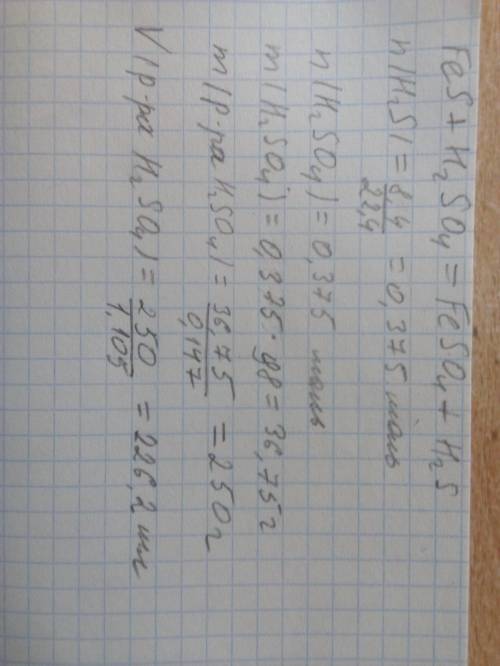 FeS + H₂SO₄ = FeSO₄ + H₂S
n(H₂S) = 8,4/22,4 = 0,375 моль
n(H₂SO₄) = 0,375 моль
m(H₂SO₄) = 0,375 · 98 = 36,75 г
m(р-ра H₂SO₄) = 36,75/0,147 = 250 г
V(р-ра H₂SO₄) = 250/1,105 = 226,2 мл